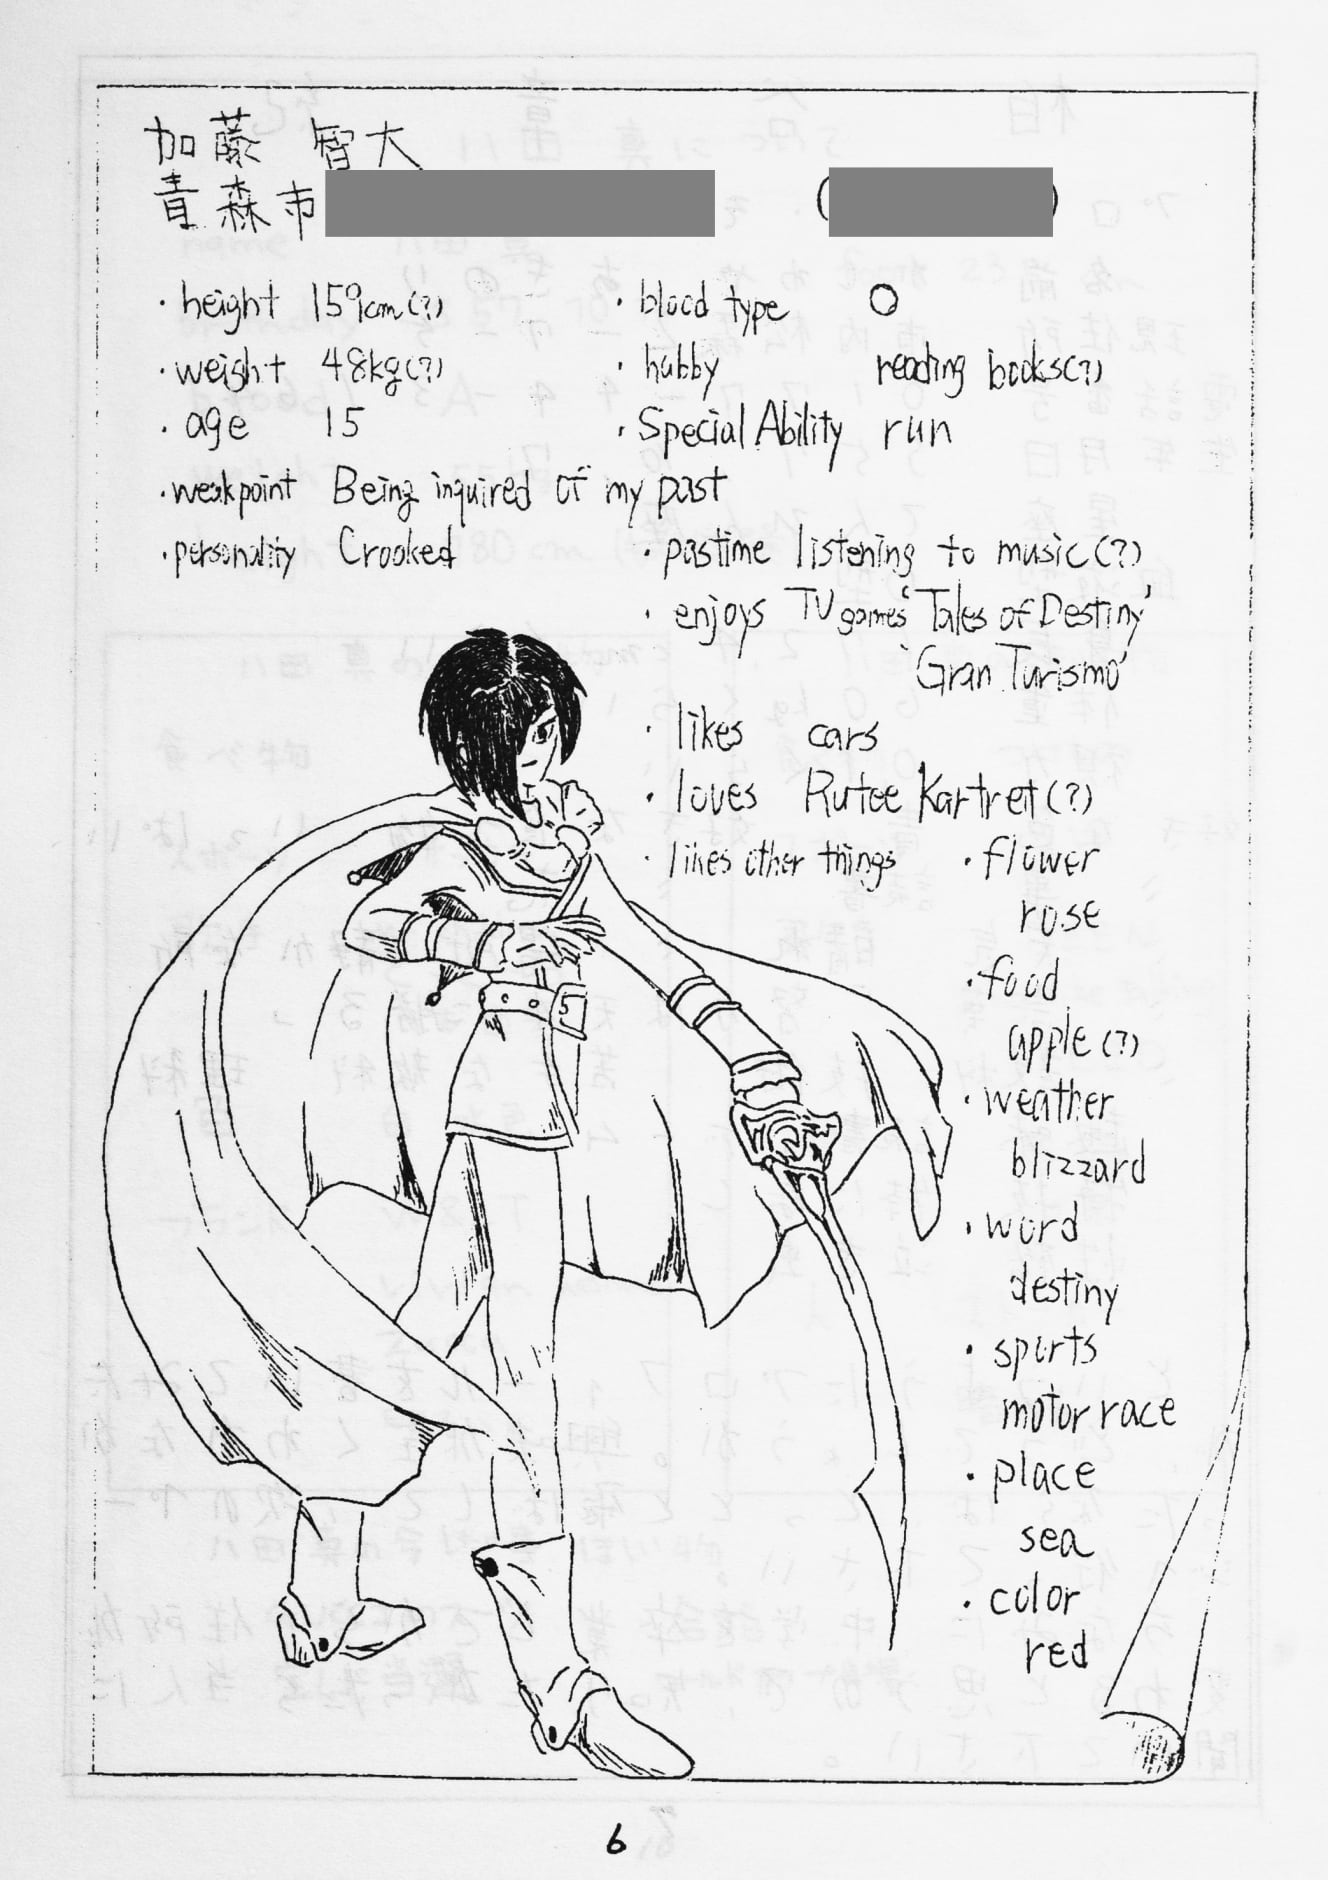 加藤 智大
青森市 ( )
・height 159cm(?)
・weight 48kg(?)
・age 15
・weak point Being inquired of my past
・personality Crooked
・blood type O
・hobby reading books(?)
・Special Ability run
・pastime listening to music(?)
・enjoys TV games 'Tales of Destiny'
'Gran Turismo'
・likes cars
・loves Rutee Kartret(?)
・likes other things
・flower
rose
・food
apple(?)
・weather
blizzard
・word
destiny
・sports
motor race
・place
sea
・color
red
6